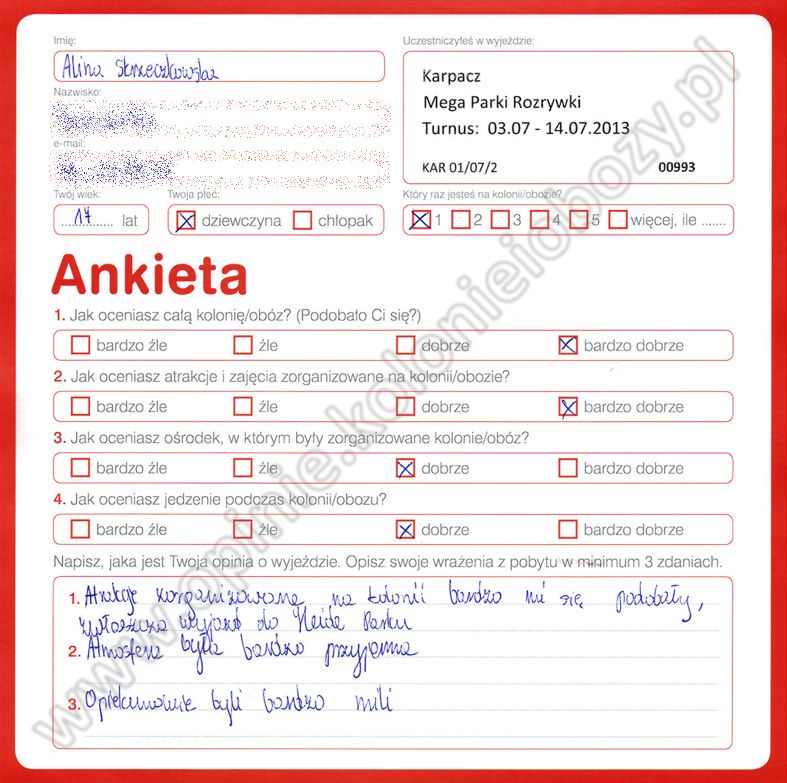 Imię:
Alina Skrzeczkowska
Uczestniczyłeś w wyjeździe:
Karpacz
Mega Parki Rozrywki
Turnus: 03.07 - 14.07.2013
KAR 01/07/2 00993
Nazwisko:
e-mail:
Twój wiek:
17 lat
Twoja płeć:
dziewczyna chłopak
Który raz jesteś na kolonii/obozie?
1 2 3 4 5 więcej, ile .......
Ankieta
1. Jak oceniasz całą kolonię/obóz? (Podobało Ci się?)
bardzo źle źle dobrze bardzo dobrze
2. Jak oceniasz atrakcje i zajęcia zorganizowane na kolonii/obozie?
bardzo źle źle dobrze bardzo dobrze
3. Jak oceniasz ośrodek, w którym były zorganizowane kolonie/obóz?
bardzo źle źle dobrze bardzo dobrze
4. Jak oceniasz jedzenie podczas kolonii/obozu?
bardzo źle źle dobrze bardzo dobrze
Napisz, jaka jest Twoja opinia o wyjeździe. Opisz swoje wrażenia z pobytu w minimum 3 zdaniach.
1. Atrakcje zorganizowane na kolonii bardzo mi się podobały,
zwłaszcza wyjazd do Heide Parku
2. Atmosfera była bardzo przyjemna
3. Opiekunowie byli bardzo mili
www.opinie.kolonieiobozy.pl